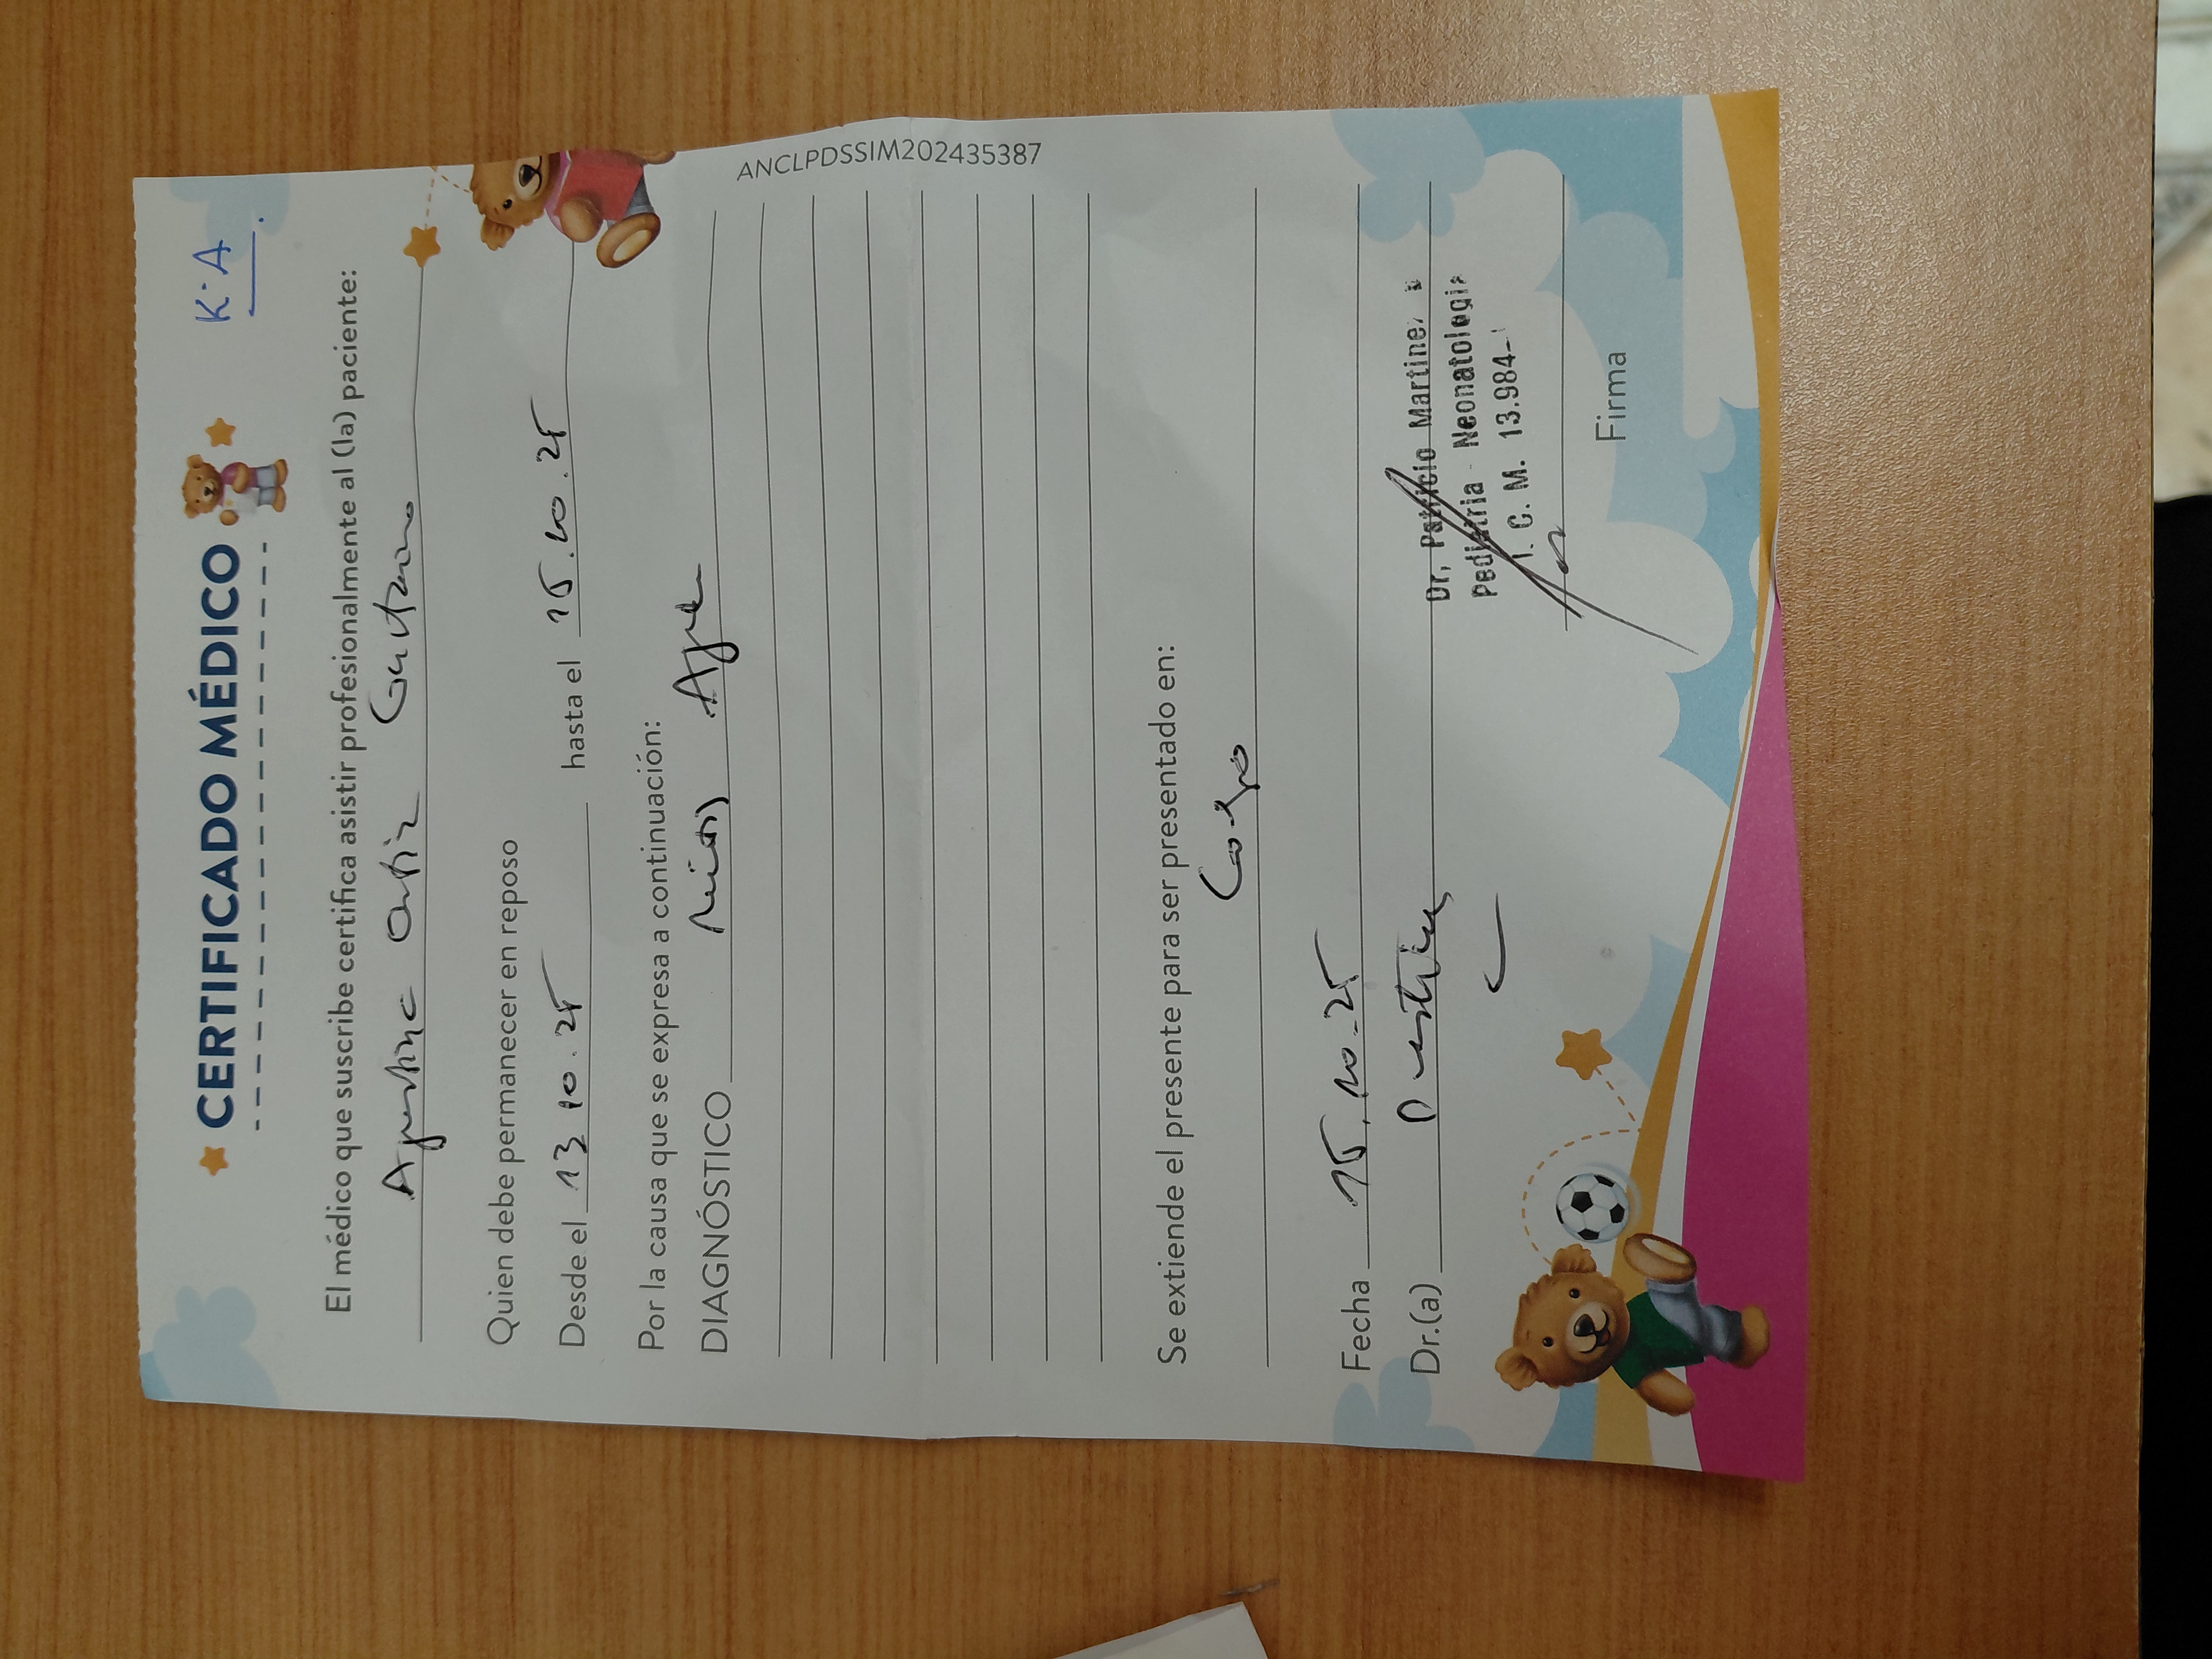 K.A.
CERTIFICADO MÉDICO
El médico que suscribe certifica asistir profesionalmente al (la) paciente:
Agustina Ortiz
Quien debe permanecer en reposo
Desde el 13 10.25 hasta el 15.10.25
Por la causa que se expresa a continuación:
DIAGNÓSTICO
ANCLPDSSIM202435387
Se extiende el presente para ser presentado en:
Fecha 15.10.25
Dr.(a)
Dr. Patricio Martine
Pediatria - Neonatologia
I. C. M. 13.984-
Firma